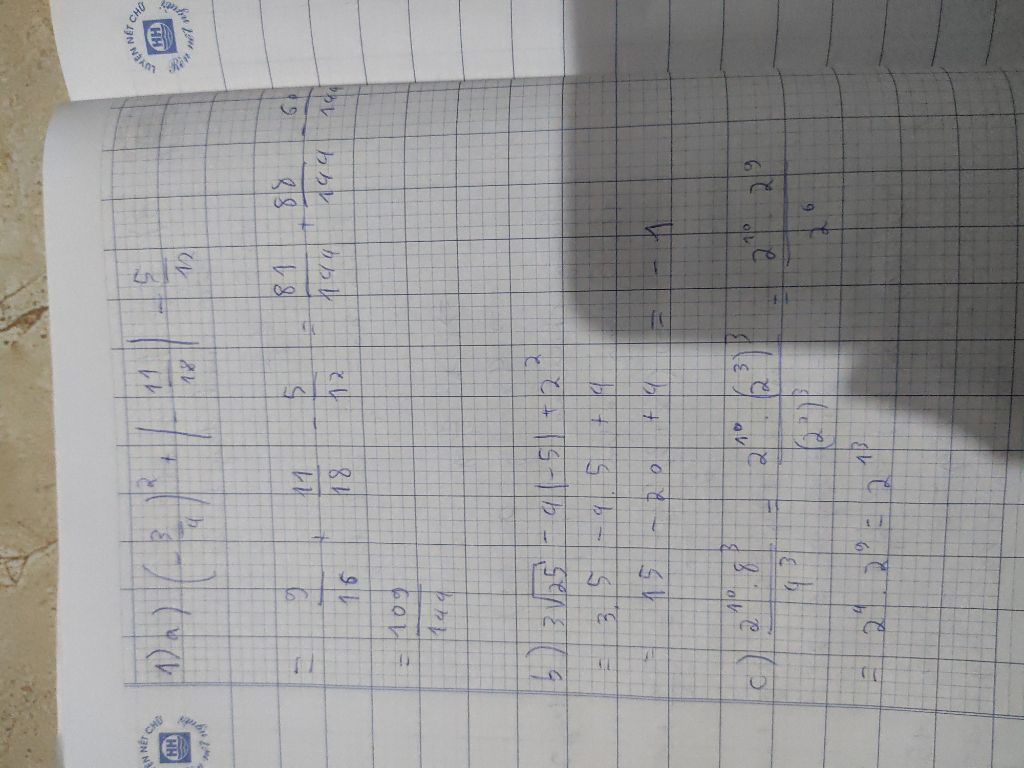 LUYỆN NÉT CHỮ
HH
1) a) (-3/4)² + |-11/18| - 5/12
= 9/16 + 11/18 - 5/12 = 81/144 + 88/144 - 60/144
= 109/144
b) 3√25 - 4|-5| + 2²
= 3.5 - 4.5 + 4
= 15 - 20 + 4 = -1
c) 2¹⁰.8³/4³ = 2¹⁰.(2³)³/(2²)³ = 2¹⁰.2⁹/2⁶
= 2⁴.2⁹ = 2¹³
YỆN NÉT CHỮ
HH